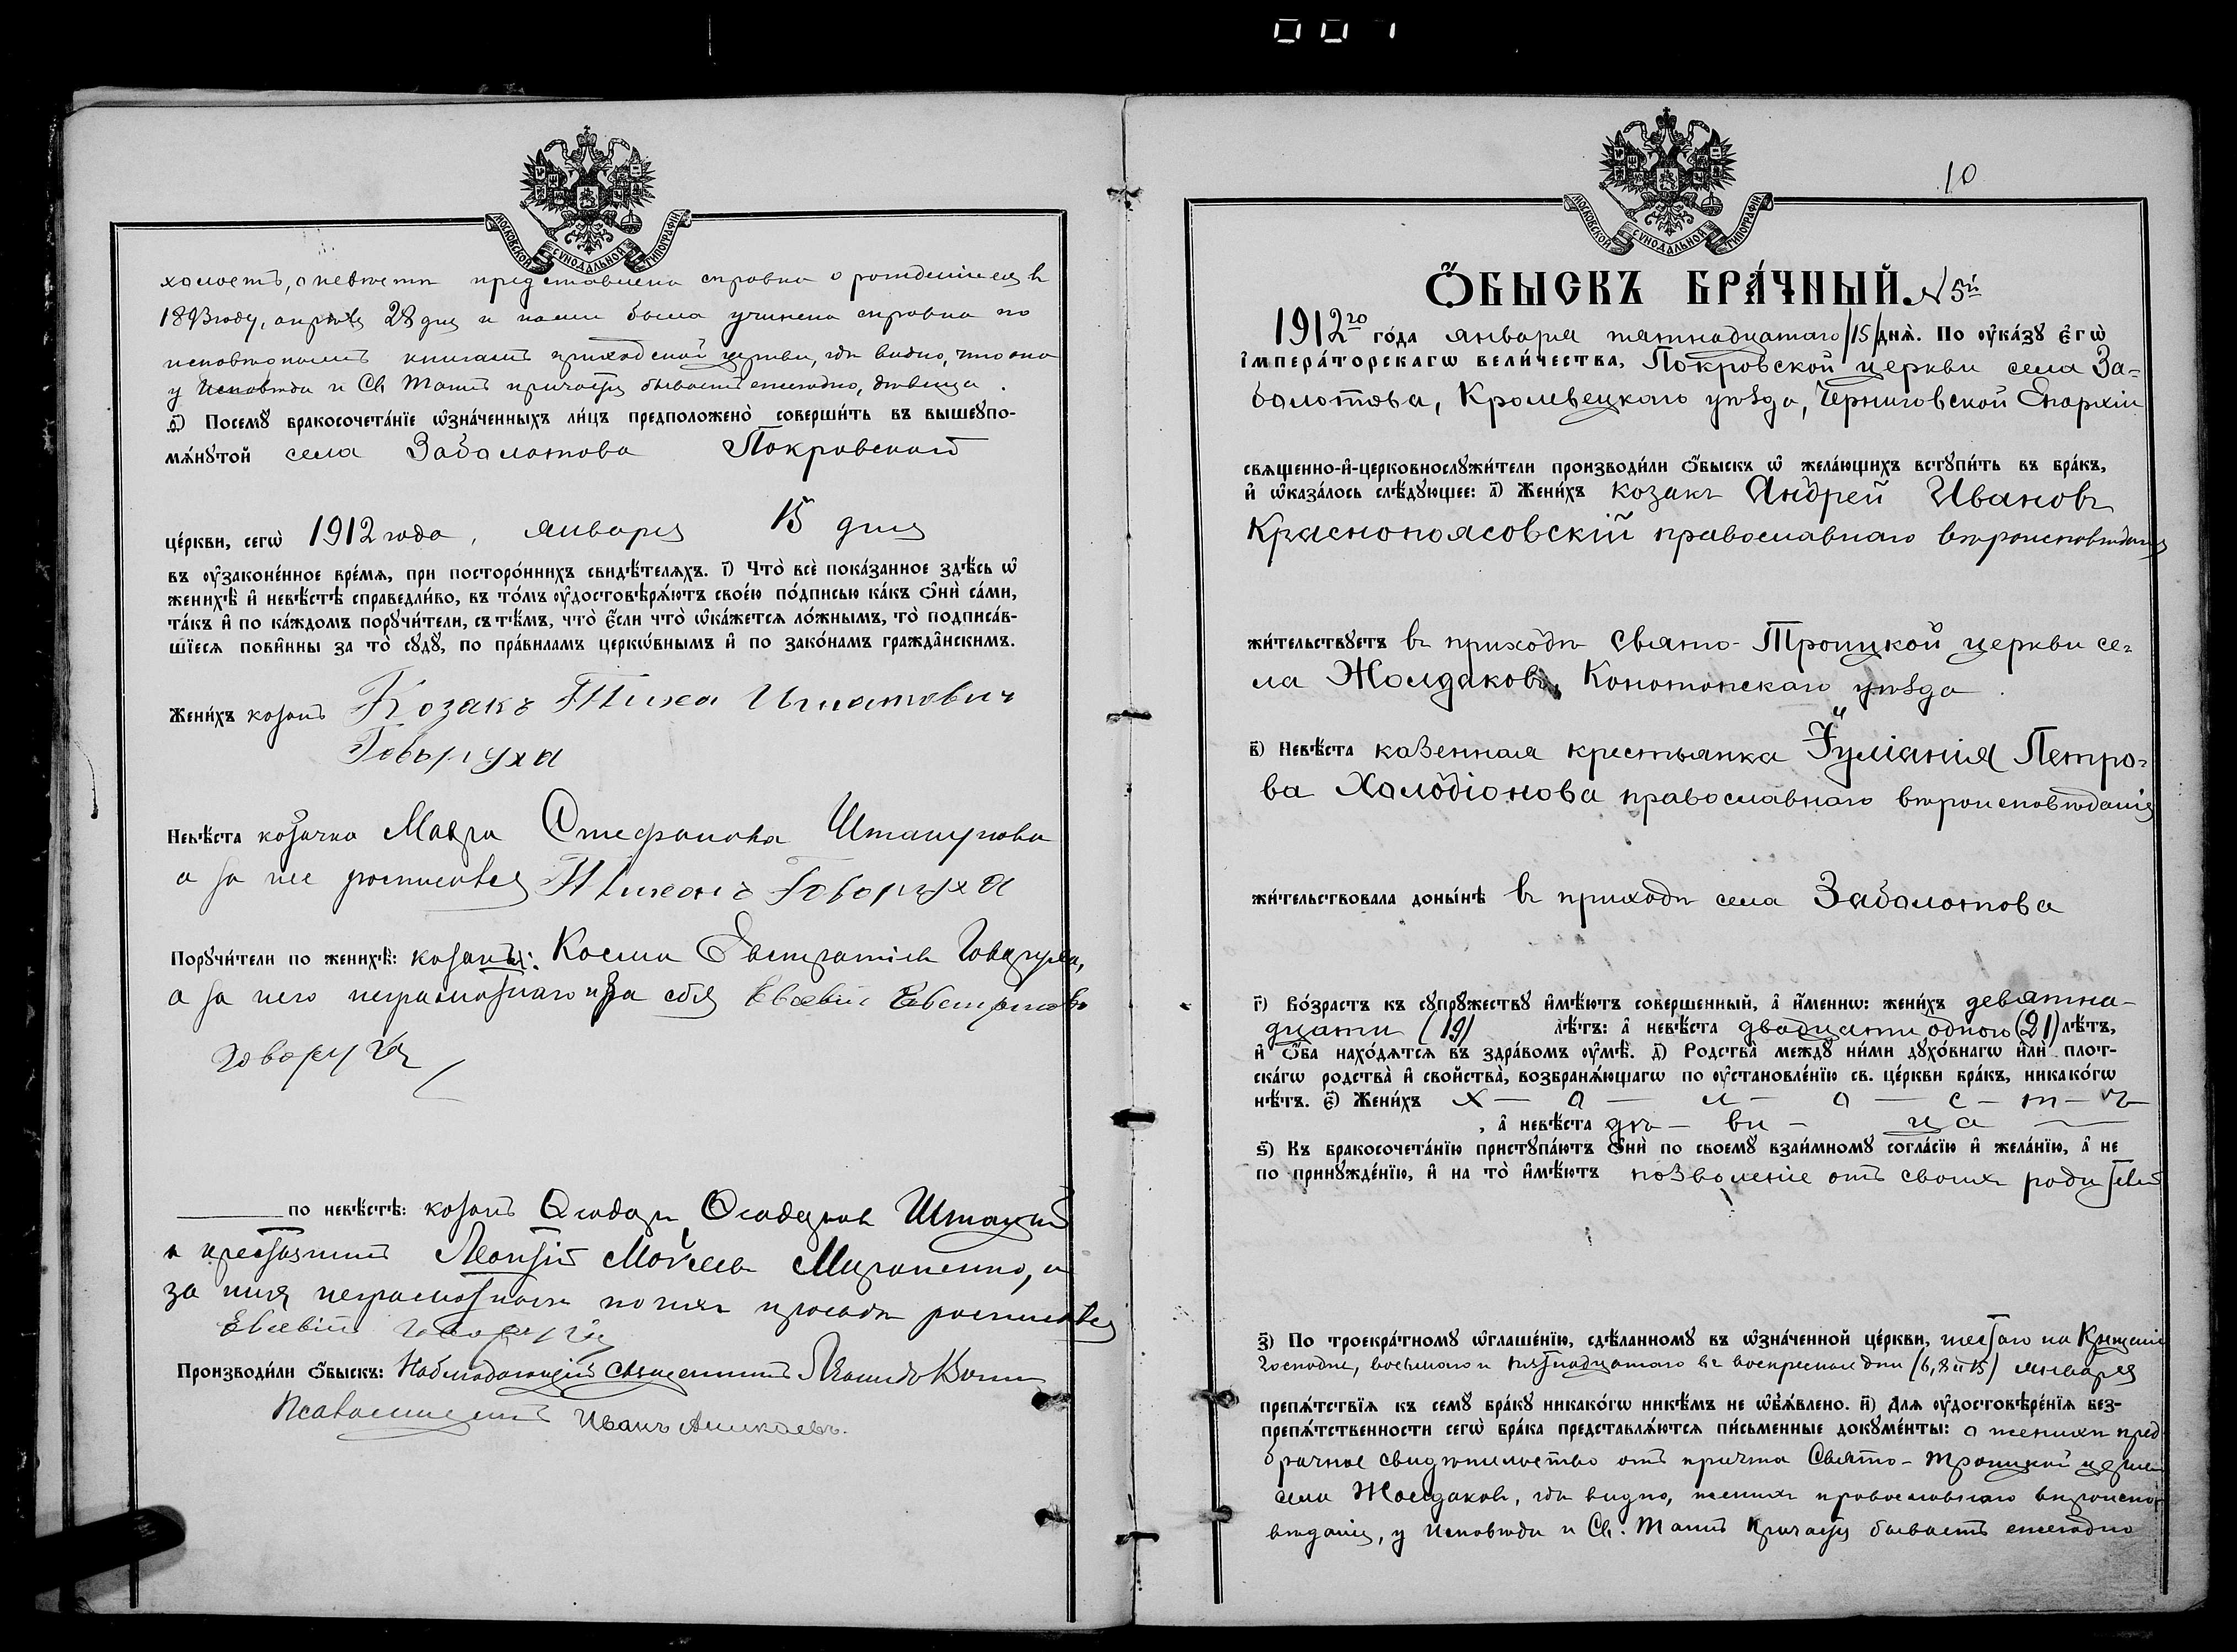 007
МОСКОВСКОЙ СѴНОДАЛЬНОЙ ТИПОГРАФІИ
холостъ, о невѣстѣ представлена справка о рожденіи ея въ
1893 году, апрѣля 28 дня и нами была учинена справка по
исповѣднымъ книгамъ приходской церкви, гдѣ видно, что она
у Исповѣди и Св Таинъ причастія бываетъ ежегодно, дѣвица.
Посемꙋ бракосочета́нїе ѡ҆зна́ченныхъ ли́цъ предположено̀ соверши́ть въ вышеꙋпо-
мѧ́нꙋтой села Заболотова Покровской
це́ркви, сегѡ̀ 1912 года, января 15 дня
въ ᲂу҆законе́нное вре́мѧ, при посторо́ннихъ свидѣ́телѧхъ. і҃) Что̀ всѐ пока́занное здѣ́сь ѡ҆
женихѣ̀ и҆ невѣ́стѣ справедли́во, въ то́мъ ᲂу҆достовѣрѧ́ютъ свое́ю по́дписью ка́къ ѻ҆нѝ са́ми,
та́къ и҆ по ка́ждомъ порꙋчи́тели, съ тѣ́мъ, что̀ є҆́сли что̀ ѡ҆ка́жетсѧ ло́жнымъ, то̀ подписа́в-
шїесѧ пови́нны за то̀ сꙋдꙋ̀, по пра́виламъ церкѡ́внымъ и҆ по зако́намъ гражда̑нскимъ.
Жени́хъ козакъ Козакъ Тихо Игнатович
Говоруха
Невѣ́ста козачка Мавра Стефанова
а за нее росписався Тихонъ Говоруха
Порꙋчи́тели по женихѣ̀: козаки: Косма Евстратіевъ Говоруха,
а за него неграмотнаго и за себя Евсевій
Говоруха
по невѣ́стѣ: козакъ Ѳеодоръ Ѳеодоровъ
и крестьянинъ Моисеевъ Мироненко, а
за нихъ неграмотныхъ по ихъ просьбѣ росписався
Евсевій Говоруха
Производи́ли ѻ҆́быскъ: Наблюдающій священникъ Леонидъ
Псаломщикъ Иванъ
10
МОСКОВСКОЙ СѴНОДАЛЬНОЙ ТИПОГРАФІИ
Ѻ҆́БЫСКЪ БРА́ЧНЫЙ. N 5й
1912го го́да января пятнадцатаго /15/ днѧ̀. По ᲂу҆ка́зꙋ є҆гѡ̀
і҆мпера́торскагѡ вели́чества, Покровской церкви села За-
болотова, Кролевецкаго уѣзда, Черниговской Епархіи
свѧщенно-и҆-церковнослꙋжи́тели производи́ли ѻ҆́быскъ ѡ҆ жела́ющихъ встꙋпи́ть въ бра́къ,
и҆ ѡ҆каза́лось слѣ́дꙋющее: а҃) Жени́хъ козакъ Андрей Ивановъ
Краснопоясовскій православнаго вѣроисповѣданія
жи́тельствꙋетъ въ приходѣ Свято-Троицкой церкви се-
ла Жолдаковъ, Конотопскаго уѣзда.
в҃) Невѣ́ста казенная крестьянка Іуліанія Петро-
ва Холодіонова православнаго вѣроисповѣданія
жи́тельствовала доны́нѣ въ приходѣ села Заболотова
г҃) Во́зрастъ къ сꙋпрꙋ́жествꙋ и҆мѣ́ютъ соверше́нный, а҆ и҆́меннѡ: жени́хъ девятна-
дцати (19) лѣ́тъ: а҆ невѣ́ста двадцати одного (21) лѣ́тъ,
и҆ ѻ҆́ба нахо́дѧтсѧ въ здра́вомъ ᲂу҆мѣ̀. д҃) Родства̀ междꙋ ни́ми дꙋхо́внагѡ и҆лѝ плот-
ска́гѡ родства̀ и҆ свойства̀, возбранѧ́ющагѡ по ᲂу҆становле́нїю св. це́ркви бра́къ, никако́гѡ
нѣ́тъ. є҃) Жени́хъ х - о - л - о - с - т - ъ
, а҆ невѣ́ста дѣ - ви - ца
ѕ҃) Къ бракосочета́нїю пристꙋпа́ютъ ѻ҆нѝ по своемꙋ̀ взаи́мномꙋ согла́сїю и҆ жела́нїю, а҆ не
по принꙋжде́нїю, и҆ на то̀ и҆мѣ́ютъ позволеніе отъ своихъ родителей
з҃) По троекра́тномꙋ ѡ҆глаше́нїю, сдѣ́ланномꙋ въ ѡ҆зна́ченной це́ркви, шестаго на Крещеніе
Господне, восьмого и пятнадцатаго въ воскресные дни (6, 8 и 15) января
препѧ́тствїѧ къ семꙋ̀ бра́кꙋ никако́гѡ никѣ́мъ не ѡ҆б̾ѧ́влено. и҃) Длѧ ᲂу҆достовѣре́нїѧ без-
препѧ́тственности сегѡ̀ бра́ка представлѧ́ютсѧ пи́сьменные докꙋме́нты: о женихѣ пред-
брачное свидѣтельство отъ причта Свято-Троицкой церкви
села Жолдаковъ, гдѣ видно, женихъ православнаго вѣроиспо-
вѣданія, у Исповѣди и Св. Таинъ Причастія бываетъ ежегодно